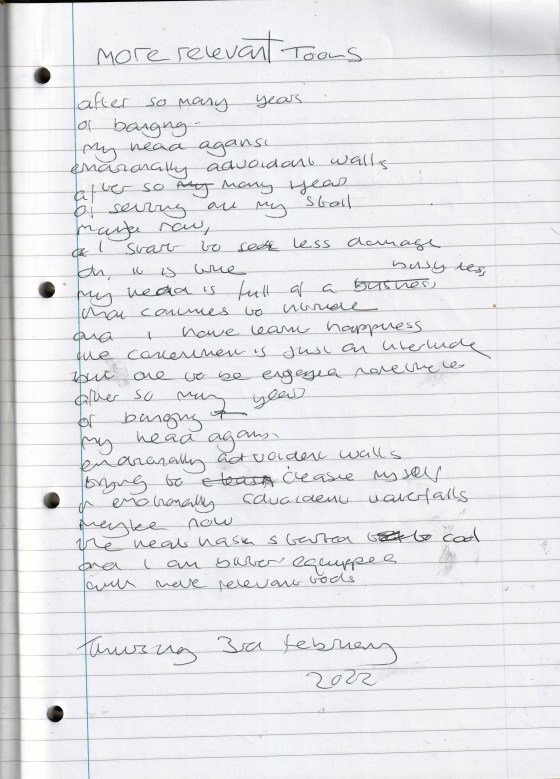 more relevant Tools
after so many years
of banging
my head against
emotionally advoident walls
after so my many years
of serving out my stall
maybe now,
as I start to see less damage
oh, it is true
my head is full of a busines, busyness,
that continues to intrude
and I have learnt happyness
like contentment is just an interlude
but one to be engaged nonetheless
after so many years
of banging
my head against
emotionally advoident walls
trying to cleans cleanse myself
in emotionally advoident waterfalls
maybe now
the heat has started to cool
and I am better equipped
with more relevant tools
Thursday 3rd february
2022